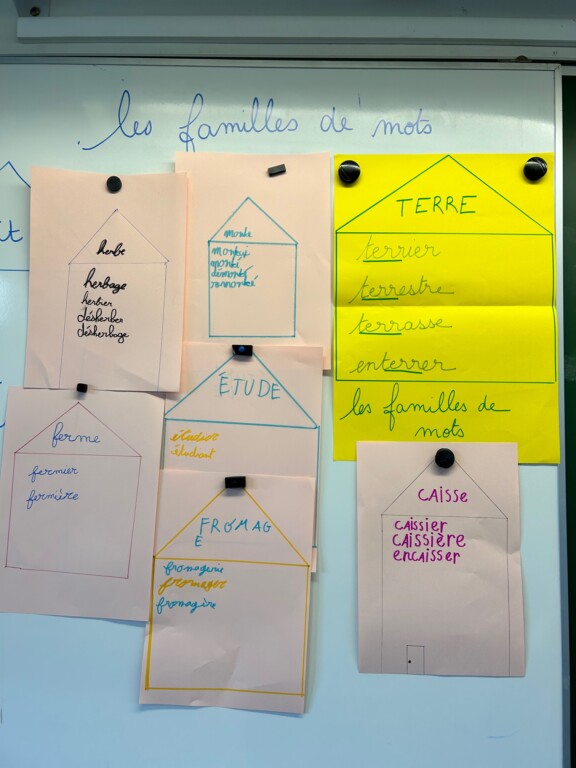 les familles de mots
it
herbe
herbage
herber
désherber
désherbage
monte
monté
démonté
remonté
TERRE
terrier
terrestre
terrasse
enterrer
les familles de
mots
ferme
fermier
fermière
ÉTUDE
étudier
étudiant
FROMAG
E
fromagerie
fromager
fromagère
CAISSE
CAISSIER
CAISSIÈRE
encaisser